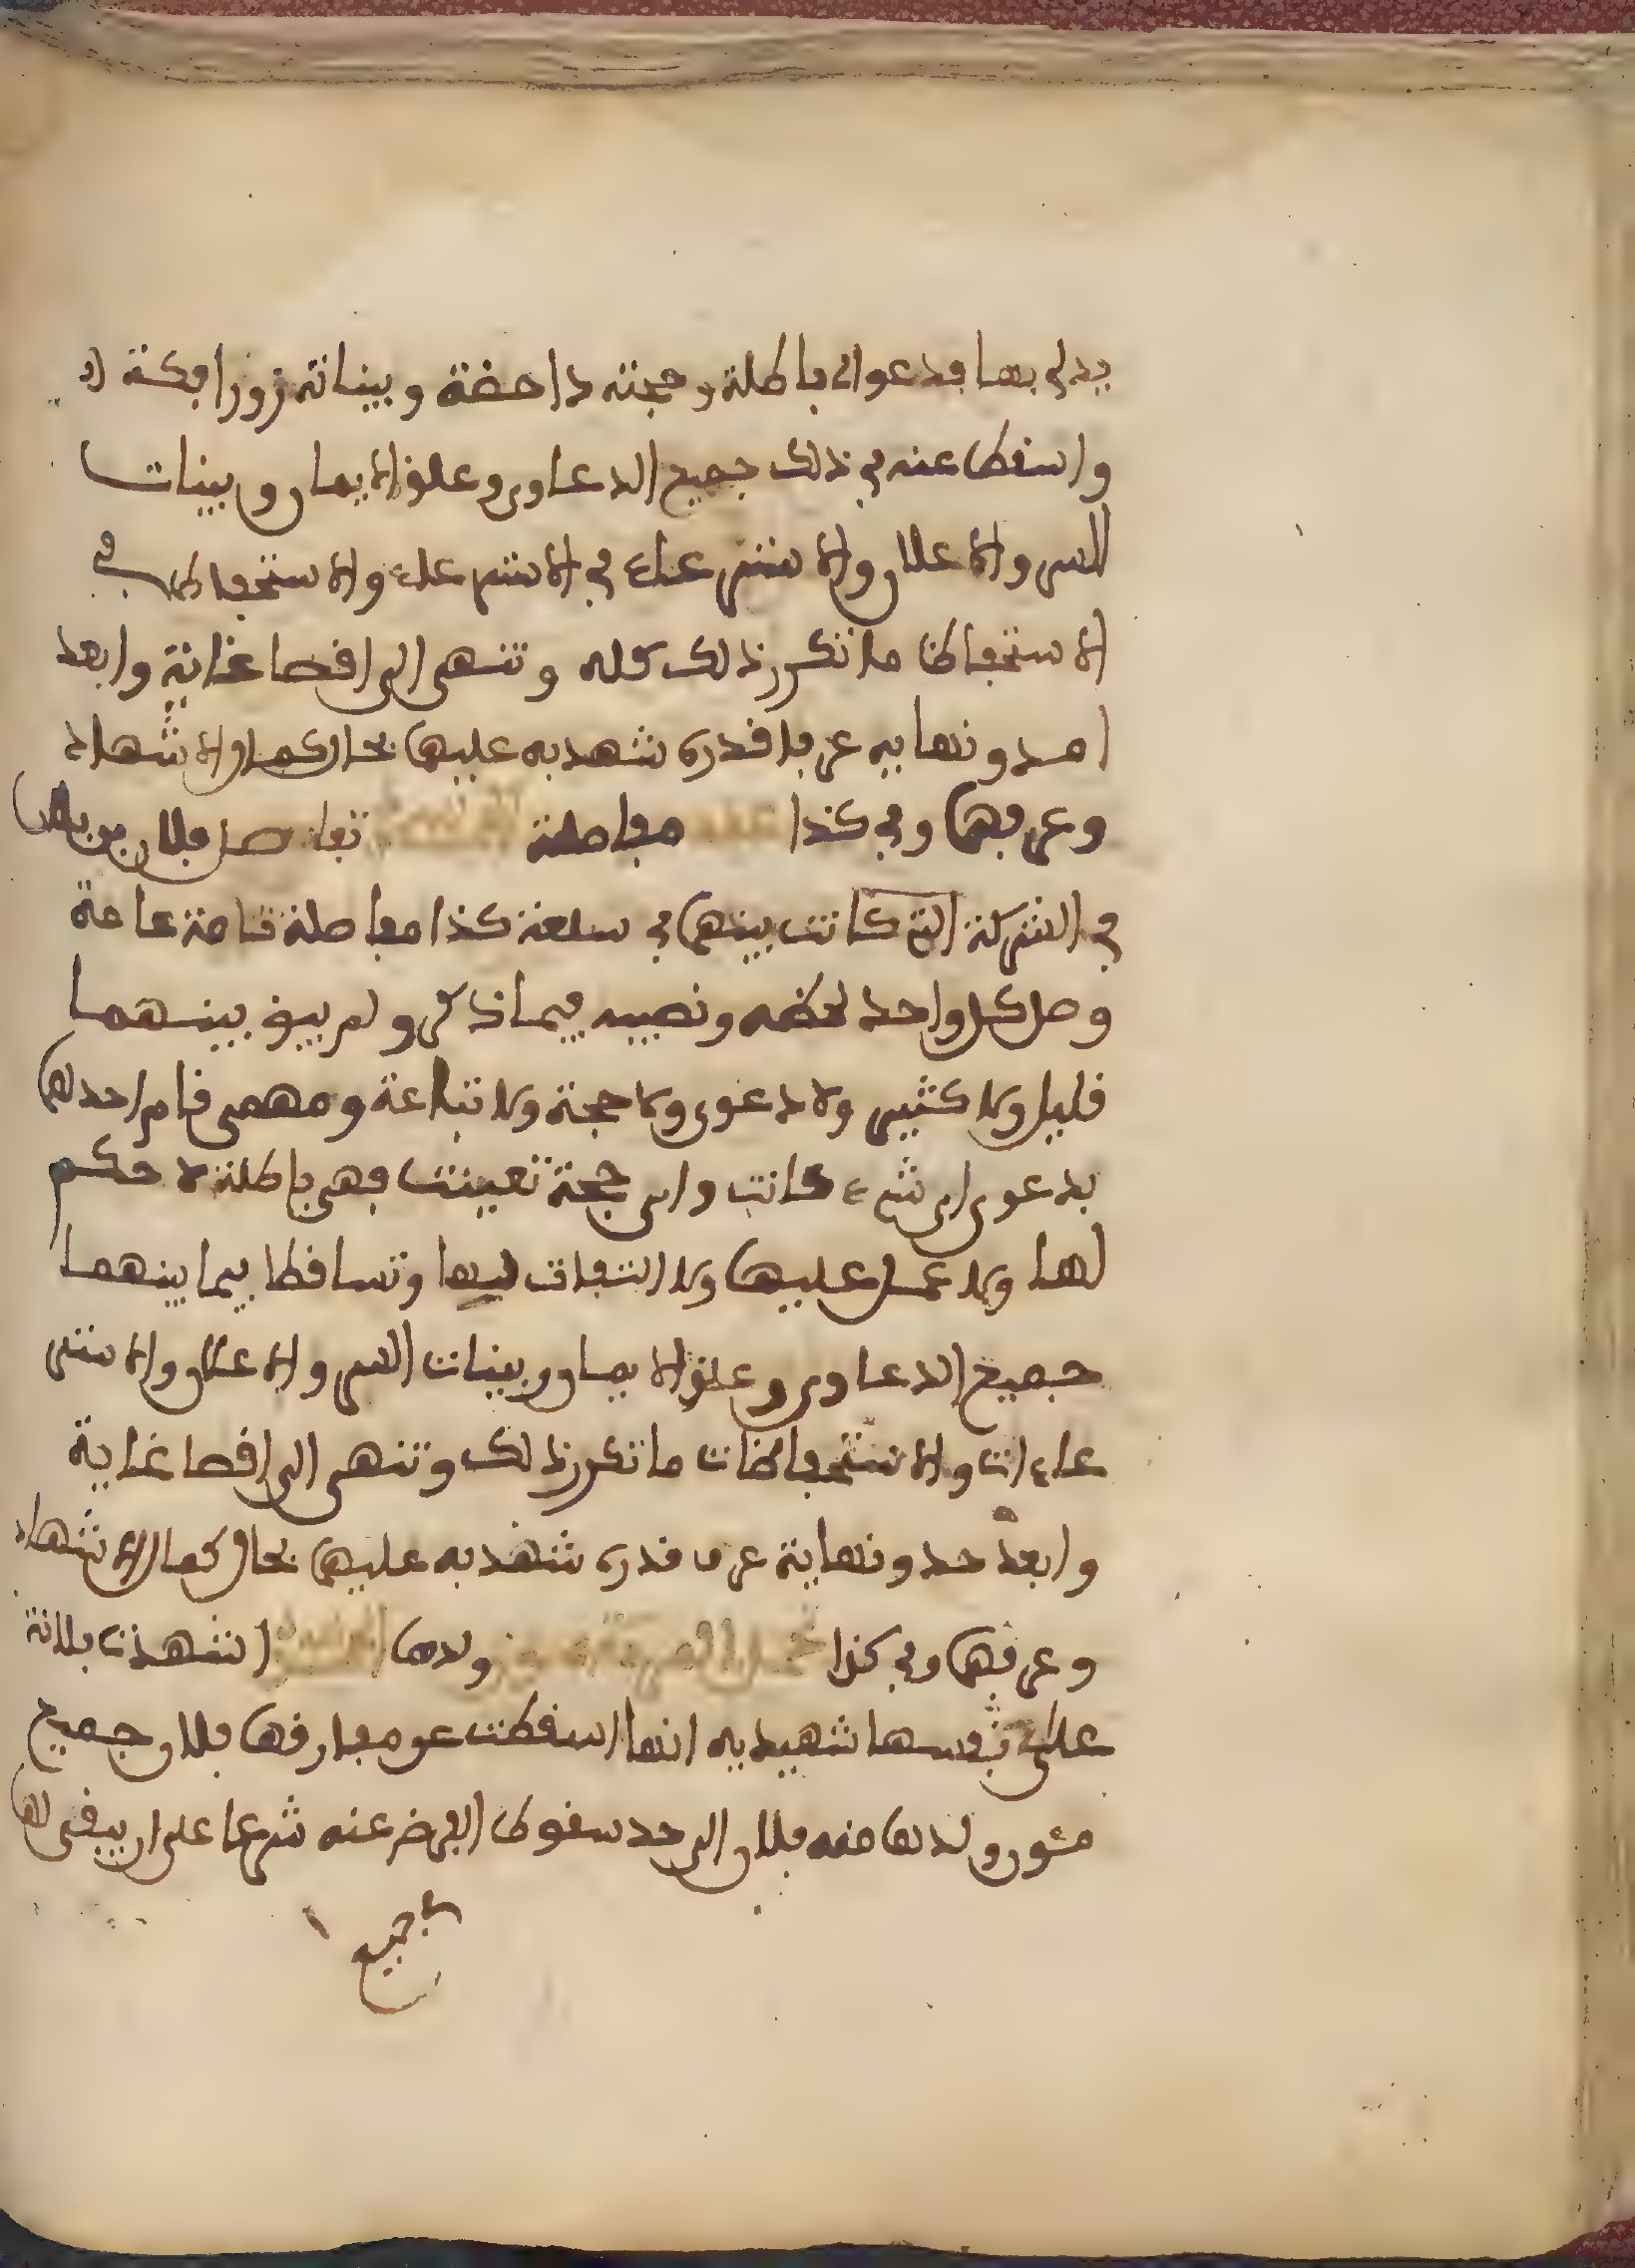 يدلي بها فدعواه باطلة وحجته داحضة وبيناته زور افكة
واسقطا عنه في ذلك جميع الدعاوي وعلق الايمان وبينات
السر والاعلان والاسترعاء في الاسترعاء والاستحفاظ في
الاستحفاظ ما تكرر ذلك كله وتنهى الى اقصا غاية وابعد
امد ونهايه عرفا قدره شهد به عليهما بحال كمال الاشهاد
وعرفهما وفي كذا مفاصلة تفاصل فلان بن فلان
في الشركة التي كانت بينهما في سلعة كذا مفاصلة تامة عامة
وصل كل واحد لحظه ونصيبه فيما ذكر ولم يبق بينهما
قليل ولا كثير ولا دعوى ولا حجة ولا تباعة ومهمى قام احدهما
بدعوى اي شيء كانت واي حجة تعينت فهي باطلة لا حكم
لها ولا عمل عليها ولا التفات اليها وتساقطا فيما بينهما
جميع الدعاوي وعلق الايمان وبينات السر والاعلان والاستر
عاءات والاستحفاظات ما تكرر ذلك وتنهى الى اقصا غاية
وابعد حد ونهاية عرفا قدره شهد به عليهما بحال كمال الاشهاد
وعرفهما وفي كذا ولدها اشهدت فلانة
على نفسها شهيديه انها اسقطت عن مفارقها فلان جميع
مئون ولدها منه فلان الى حد سقوط الفرض عنه شرعا على ان يبقى لها
جميع